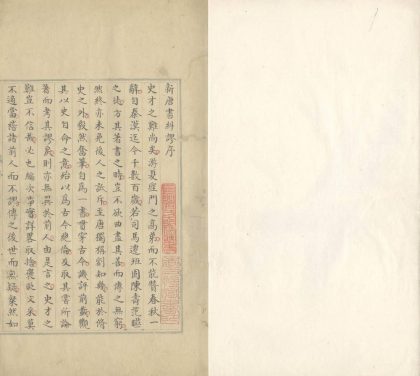 新唐書糾謬序
史才之難尚矣游夏聖門之高弟而不能贊春秋一
辭自秦漢迄今千數百歲若司馬遷班固陳壽范曄
之徒方其著書之時豈不欲曲盡其善而傳之無窮
然終亦未免後人之詆斥至唐獨稱劉知幾能於修
史之外毅然奮筆自爲一書貫穿古今譏評前載觀
其以史自命之意殆以爲古今絶倫及取其嘗所論
著而考其謬戾則亦無異於前人由是言之史才之
難豈不信哉必也編次事實詳畧取捨褒貶文采莫
不適當稽諸前人而不謬傳之後世而無疑粲然如